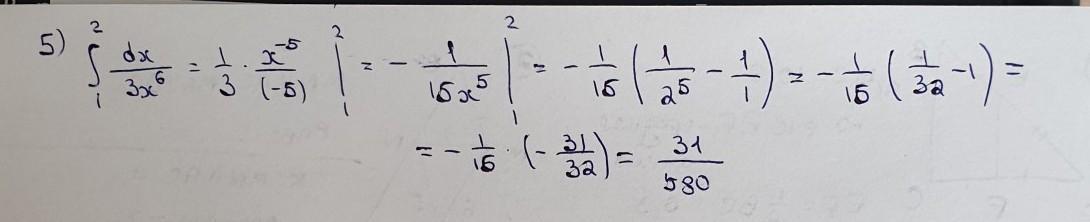 5) ∫₁² dx/3x⁶ = 1/3 · x⁻⁵/(-5) |₁² = - 1/15x⁵ |₁² = - 1/15 (1/2⁵ - 1/1) = - 1/15 (1/32 - 1) =
= - 1/15 · (- 31/32) = 31/580